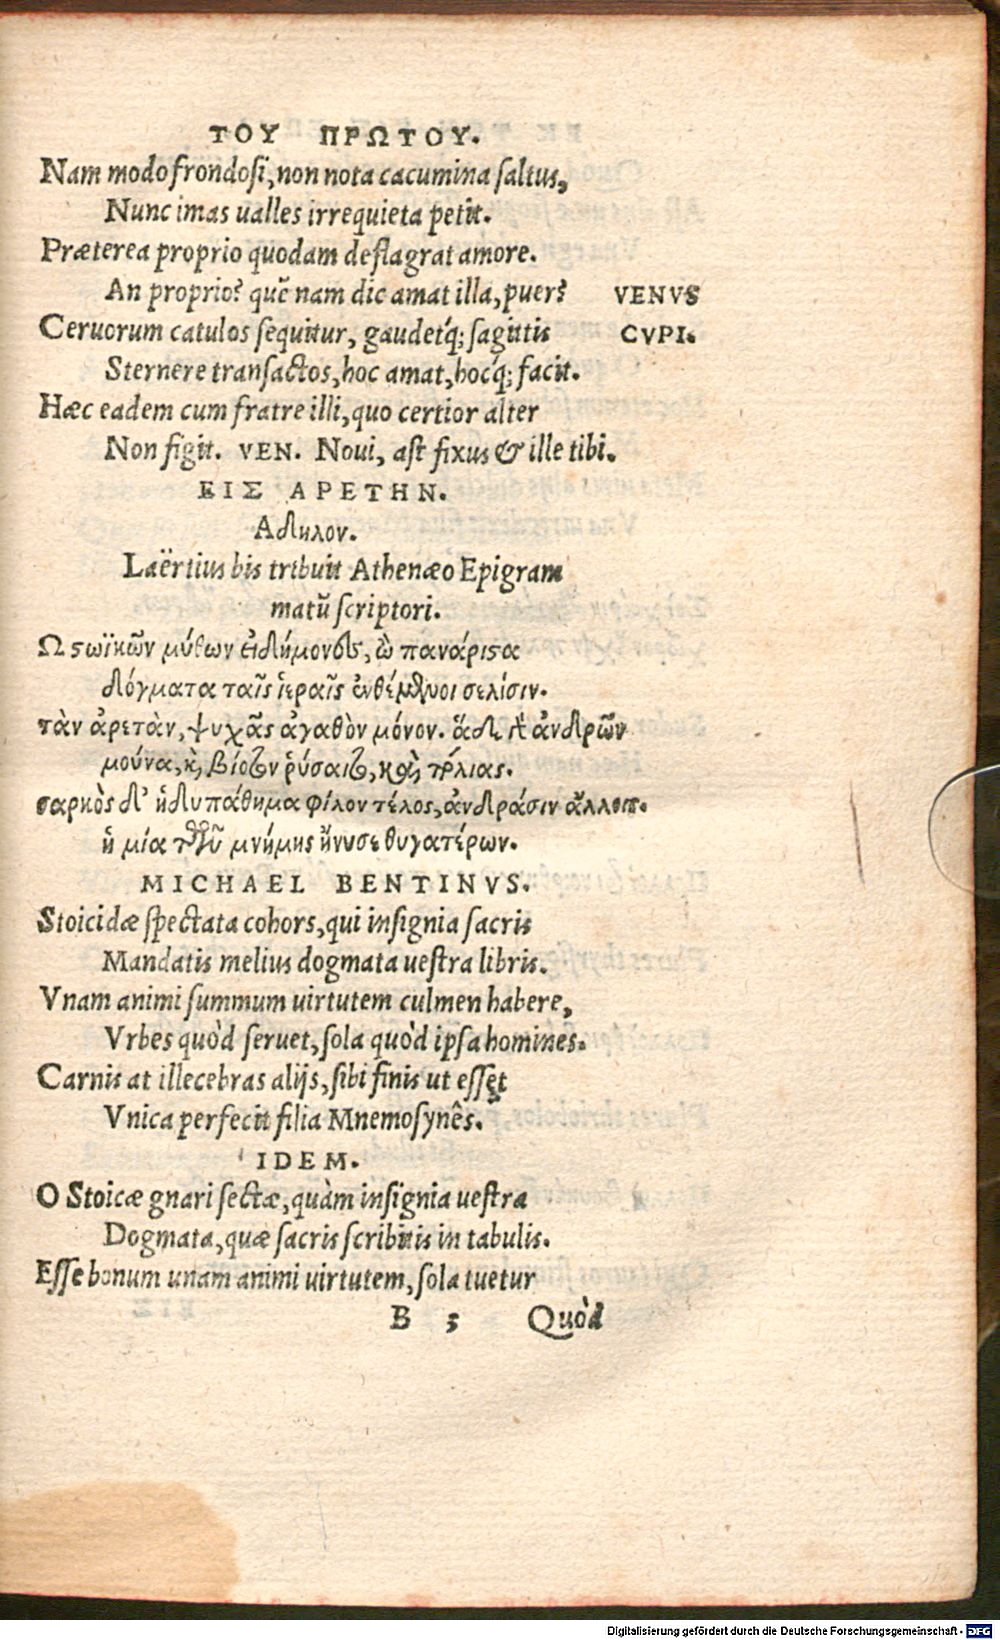 ΤΟΥ ΠΡΩΤΟΥ.
Nam modo frondosi, non nota cacumina saltus,
Nunc imas ualles irrequieta petit.
Præterea proprio quodam deflagrat amore.
An proprio? quē nam dic amat illa, puer? VENVS
Ceruorum catulos sequitur, gaudetq́; sagittis CVPI.
Sternere transactos, hoc amat, hocq́; facit.
Hæc eadem cum fratre illi, quo certior alter
Non figit. VEN. Noui, ast fixus & ille tibi.
ΕΙΣ ΑΡΕΤΗΝ.
Αδηλον.
Laërtius bis tribuit Athenæo Epigram
matū scriptori.
Ω ϛωϊκῶν μύθων εἰδήμονες, ὦ πανάριϛα
δόγματα ταῖς ἱεραῖς ἐνθέμενοι σελίσιν.
τὰν ἀρετὰν, ψυχᾶς ἀγαθὸν μόνον. ἅδε γὰρ ἀνδρῶν
μούνα, κỳ βίοτον ῥύσατο, καὶ πόλιας.
σαρκὸς δ' ἡδυπάθημα φίλον τέλος, ἀνδράσιν ἄλλοις.
ἡ μία τῶν μνήμης ἤνυσε θυγατέρων.
MICHAEL BENTINVS.
Stoicidæ spectata cohors, qui insignia sacris
Mandatis melius dogmata uestra libris.
Vnam animi summum uirtutem culmen habere,
Vrbes quòd seruet, sola quòd ipsa homines.
Carnis at illecebras alijs, sibi finis ut esset
Vnica perfecit filia Mnemosynês.
IDEM.
O Stoicæ gnari sectæ, quàm insignia uestra
Dogmata, quæ sacris scribitis in tabulis.
Esse bonum unam animi uirtutem, sola tuetur
B 5 Quòd
Digitalisierung gefördert durch die Deutsche Forschungsgemeinschaft - DFG